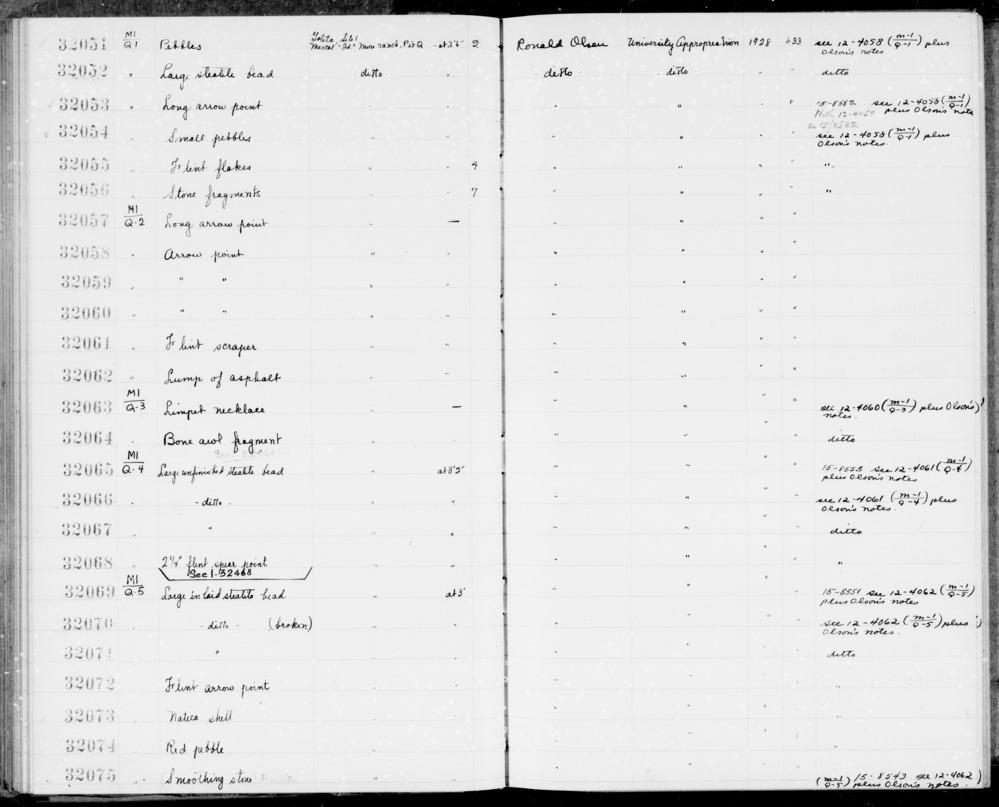 32051 M1/Q1 Pebbles Goleta Site 1 Mescal Id. More ranch, Pit Q - at 2'6" 2 Ronald Olson University Appropreation 1928 633 see 12-4058 (m-1/Q-1) plus Olson's notes.
32052 " Large steatite bead ditto " ditto ditto " ditto
32053 " Long arrow point " " " " " 15-8582 see 12-4058 (m-1/Q-1) plus Olson's note
32054 " Small pebbles " " " " " see 12-4058 (m-1/Q-1) plus Olson's notes.
32055 " Flint flakes " " 4 " " " " "
32056 " Stone fragments " " 7 " " " " "
32057 M1/Q-2 Long arrow point " — " " " "
32058 " Arrow point " " " " " "
32059 " " " " " " " " "
32060 " " " " " " " " "
32061 " Flint scraper " " " " " "
32062 " Lump of asphalt " " " " " "
32063 M1/Q-3 Limpet necklace " — " " " " see 12-4060 (m-1/Q-3) plus Olson's notes.
32064 " Bone awl fragment " " " " " " ditto
32065 M1/Q-4 Large unfinished steatite bead " at 3'2" " " " " 15-8553 see 12-4061 (m-1/Q-4) plus Olson's notes
32066 " - ditto - " " " " " " see 12-4061 (m-1/Q-4) plus Olson's notes.
32067 " " " " " " " " ditto
32068 " 2¼" flint spear point " " " " " " "
See 1-52468
32069 M1/Q-5 Large inlaid steatite bead " at 3' " " " " 15-8551 see 12-4062 (m-1/Q-5) plus Olson's notes
32070 " - ditto - (broken) " " " " " " see 12-4062 (m-1/Q-5) plus Olson's notes.
32071 " " " " " " " " ditto
32072 " Flint arrow point " " " " " " "
32073 " Natica shell " " " " " " "
32074 " Red pebble " " " " " " "
32075 " Smoothing stone " " " " " " (m-1/Q-5) 15-8543 see 12-4062 plus Olson's notes.